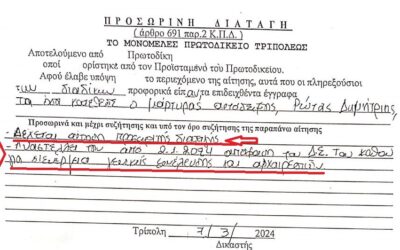 ΠΡΟΣΩΡΙΝΗ ΔΙΑΤΑΓΗ
( άρθρο 691 παρ.2 Κ.Π.Δ. )
ΤΟ ΜΟΝΟΜΕΛΕΣ ΠΡΩΤΟΔΙΚΕΙΟ ΤΡΙΠΟΛΕΩΣ
Αποτελούμενο από Πρωτοδίκη
οποί ορίστηκε από τον Προϊσταμένο του Πρωτοδικείου.
Αφού έλαβε υπόψη το περιεχόμενο της αίτησης, αυτά που οι πληρεξούσιοι
των διαδίκων προφορικά είπαν και τα επιδειχθέντα έγγραφα
ο μάρτυρας Ρώτας Δημήτριος,
Προσωρινά και μέχρι συζήτησης και υπό τον όρο συζήτησης της παραπάνω αίτησης
- Δέχεται αίτημα προσωρινής διαταγής
- Αναστέλλει την από 2.1.2024 απόφαση του Δ.Σ. του καθού
για διενέργεια γενικής συνέλευσης και αρχαιρεσιών
Τρίπολη 7/3/ 2024
Δικαστής